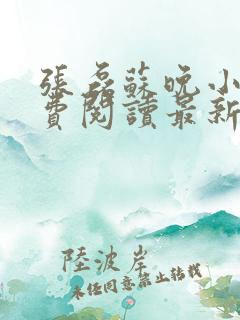 張磊蘇晚小
費閱讀最新
陸波岸
未經同意禁止轉載